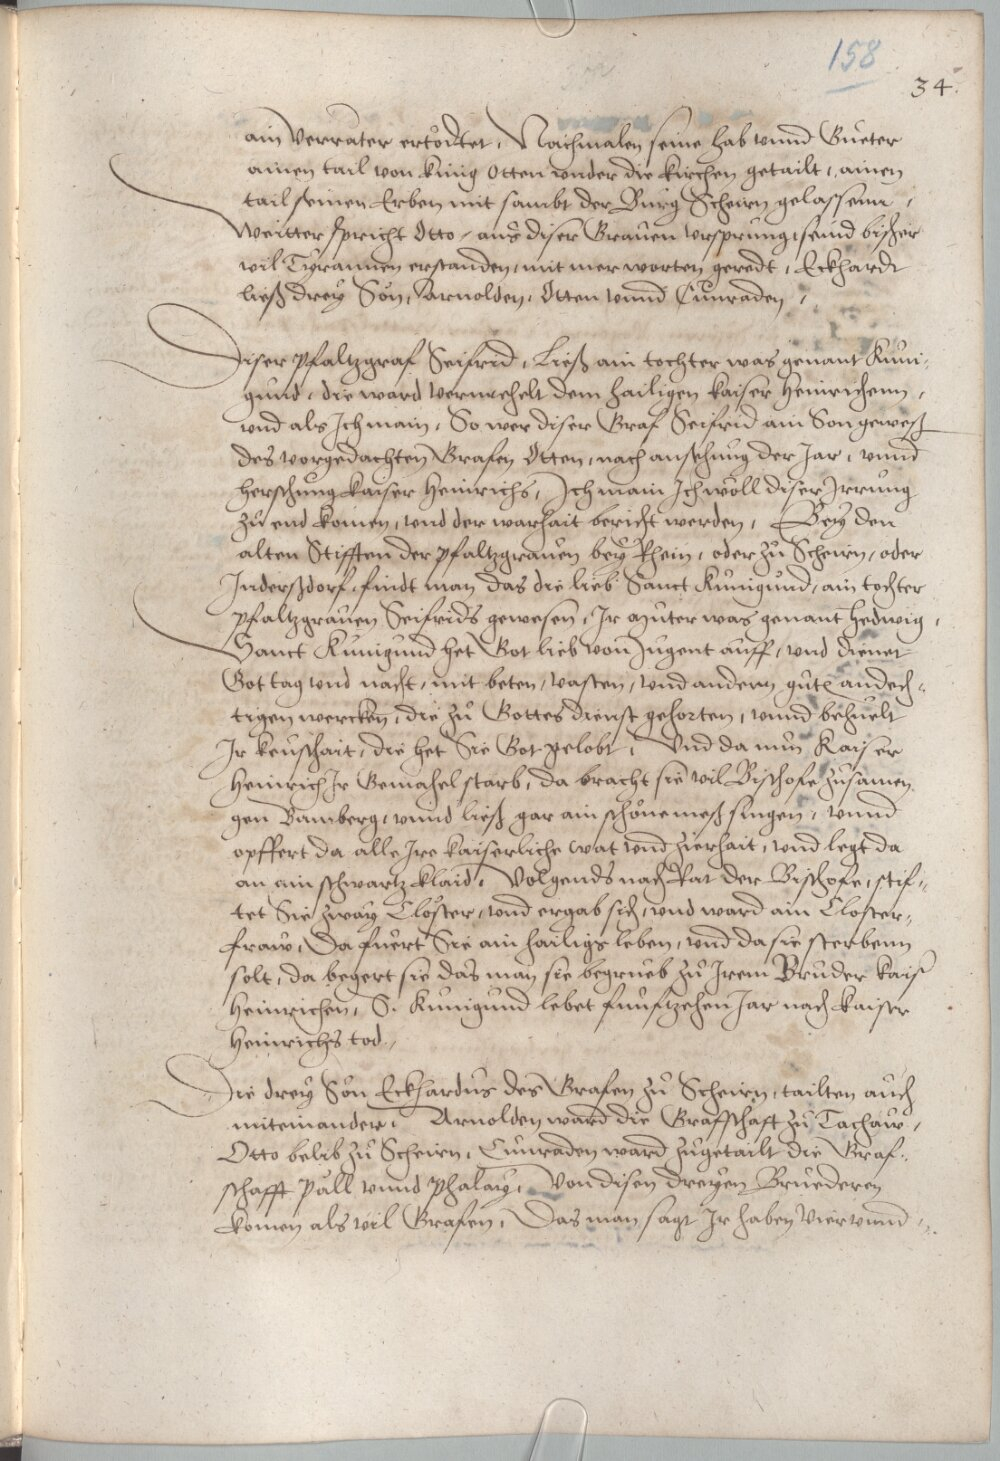 158
34.
ain Verräter ertödtet, Nachmalen seine hab unnd Güeter
ainen tail von king Otten under die kirchen getailt, ainen
tail seinen Erben mit sambt der Burg Scheirn gelassenn,
Weitter spricht Otto, aus diser Graven ursprung, seind bißher
vil Tirannen erstanden, mit mer worten geredt, Eckhardt
ließ drey Sön, Arnolden, Otten unnd Cunraden,
Diser pfaltzgraf Seifrid, Ließ ain tochter was genant Kuni-
gund, die ward vermehelt dem hailigen kaiser Heinrichenn,
und als Ich main, So wer diser Graf Seifrid ain Son geweß
des vorgedachten Grafen Otten, nach ansehung der Jar, unnd
herschung kaiser Heinrichs, Ich main Ich wöll diser Irrung
zu end komen, und der warhait bericht werden, Bey den
alten Stifften der pfaltzgraven bey Rhein, oder zu Scheirn, oder
Inderßdorf, findt man das die lieb Sanct Kunigund, ain tochter
pfaltzgraven Seifrids gewesen, Ir muter was genant Hedwig,
Sanct Kunigund het Got lieb von Jugent auff, und dienet
Got tag und nacht, mit beten, vasten, und andern guten andech-
tigen wercken, die zu Gottes dienst gehorten, unnd behuelt
Ir keuschait, die het Sie Got gelobt, Und da nun Kaiser
Heinrich Ir Gemahel starb, da bracht sie vil Bischofe zusamen
gen Bamberg, unnd ließ gar ain schöne meß singen, unnd
opffert da alle Ire kaiserliche wat und zierhait, und legt da
an ain schwartz klaid, Volgends nach Rat der Bischofe, stif-
tet Sie zway Clöster, und ergab sich, und ward ain Closter-
fraw, Da fuert Sie ain hailigs leben, und da sie sterbenn
solt, da begert sie das man sie begrueb zu Irem Bruder kaiser
Heinrichen, S. Kunigund lebet funftzehen Jar nach kaiser
Heinrichs tod,
Die drey Sön Eckhardus des Grafen zu Scheirn, tailten auch
miteinander, Arnolden ward die Grafschaft zu Tachaw,
Otto belib zu Scheirn, Cunraden ward zugetailt die Graf-
schafft Päll unnd phalay, Von disen dreyen Bruederen
komen als vil Grafen, Das man sagt Ir haben Vierunnd-